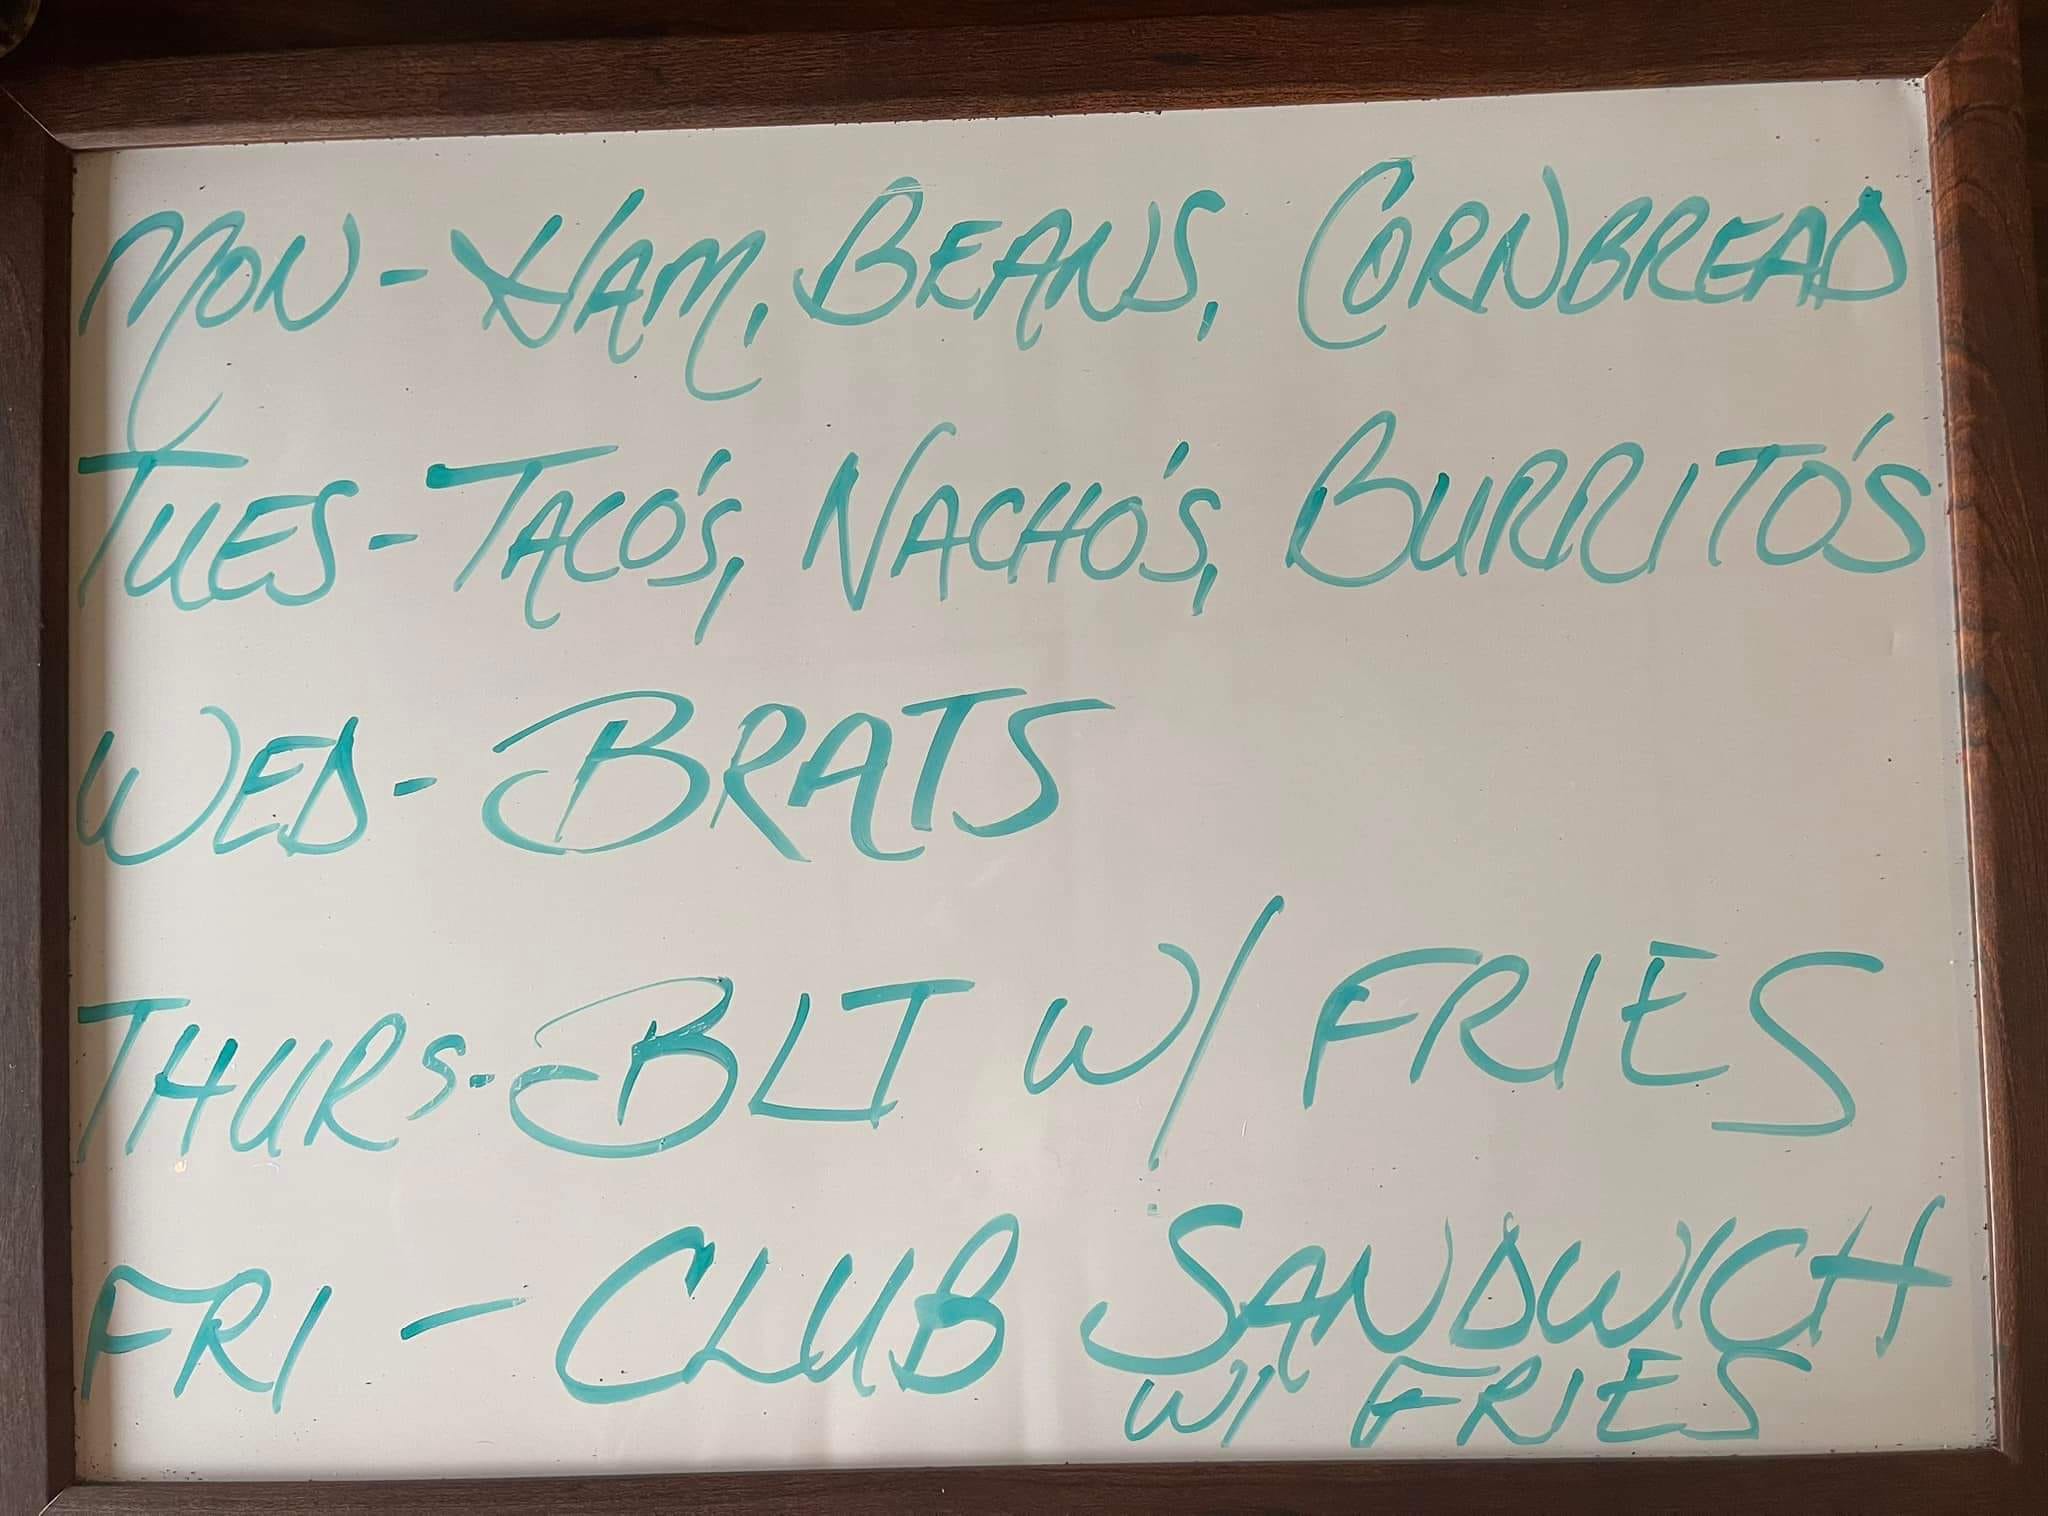 MON - HAM, BEANS, CORNBREAD
TUES - TACO'S, NACHO'S, BURRITO'S
WED - BRATS
THURS - BLT W/ FRIES
FRI - CLUB SANDWICH
W/ FRIES